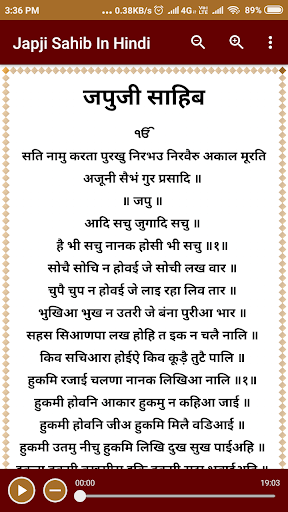 3:36 PM
0.38KB/s
4G
VoLTE
71
Japji Sahib In Hindi
जपुजी साहिब
ੴ
सति नामु करता पुरखु निरभउ निरवैरु अकाल मूरति
अजूनी सैभं गुर प्रसादि ॥
॥ जपु ॥
आदि सचु जुगादि सचु ॥
है भी सचु नानक होसी भी सचु ॥१॥
सोचै सोचि न होवई जे सोची लख वार ॥
चुपै चुप न होवई जे लाइ रहा लिव तार ॥
भुखिआ भुख न उतरी जे बंना पुरीआ भार ॥
सहस सिआणपा लख होहि त इक न चलै नालि ॥
किव सचिआरा होईऐ किव कूड़ै तुटै पालि ॥
हुकमि रजाई चलणा नानक लिखिआ नालि ॥१॥
हुकमी होवनि आकार हुकमु न कहिआ जाई ॥
हुकमी होवनि जीअ हुकमि मिलै वडिआई ॥
हुकमी उतमु नीचु हुकमि लिखि दुख सुख पाईअहि ॥
00:00
19:03